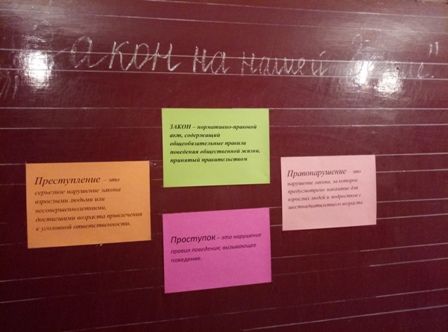 "Закон на нашей
ЗАКОН – нормативно-правовой
акт, содержащий
общеобязательные правила
поведения общественной жизни,
принятый правительством
Преступление – это
серьезное нарушение закона
взрослыми людьми или
несовершеннолетними,
достигшими возраста привлечения
к уголовной ответственности.
Правонарушение – это
нарушение закона, за которое
предусмотрено наказание для
взрослых людей и подростков с
шестнадцатилетнего возраста.
Проступок – это нарушение
правил поведения; вызывающее
поведение.